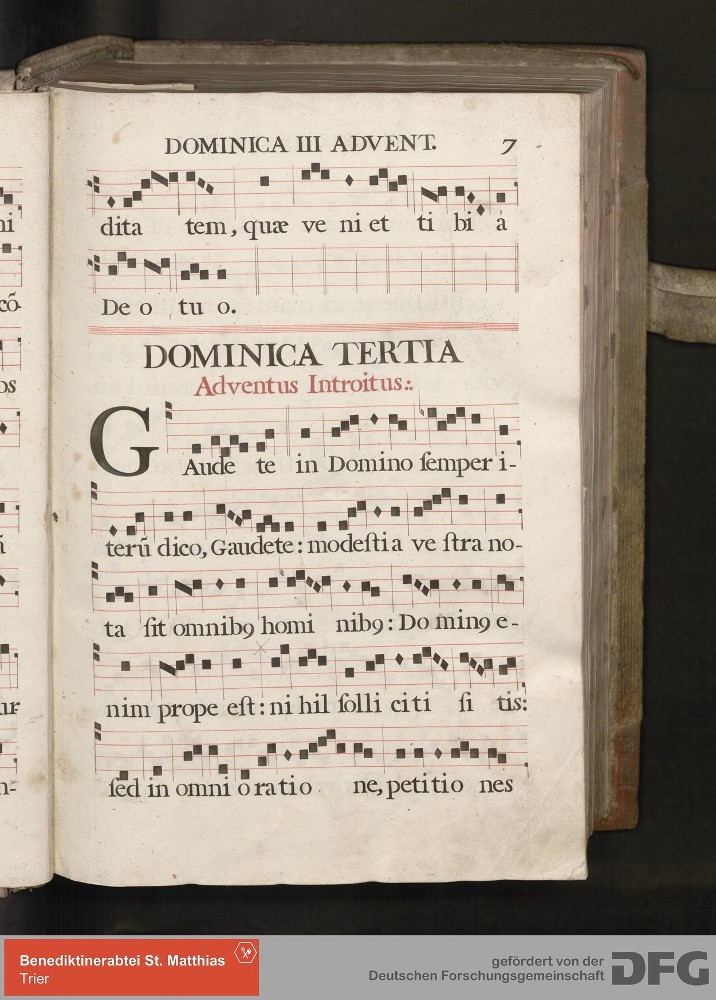 DOMINICA III ADVENT. 7
dita tem, quæ ve ni et ti bi a
De o tu o.
DOMINICA TERTIA
Adventus Introitus:.
GAude te in Domino ſemper i-
terū dico, Gaudete: modeſti a ve ſtra no-
ta ſit omnibꝯ homi nibꝯ: Do minꝯ e-
nim prope eſt: ni hil ſolli ci ti ſi tis:
ſed in omni o ra ti o ne, pe ti ti o nes
ni
cō-
os
ā
ur-
n-
Benediktinerabtei St. Matthias
Trier
gefördert von der
Deutschen Forschungsgemeinschaft
DFG